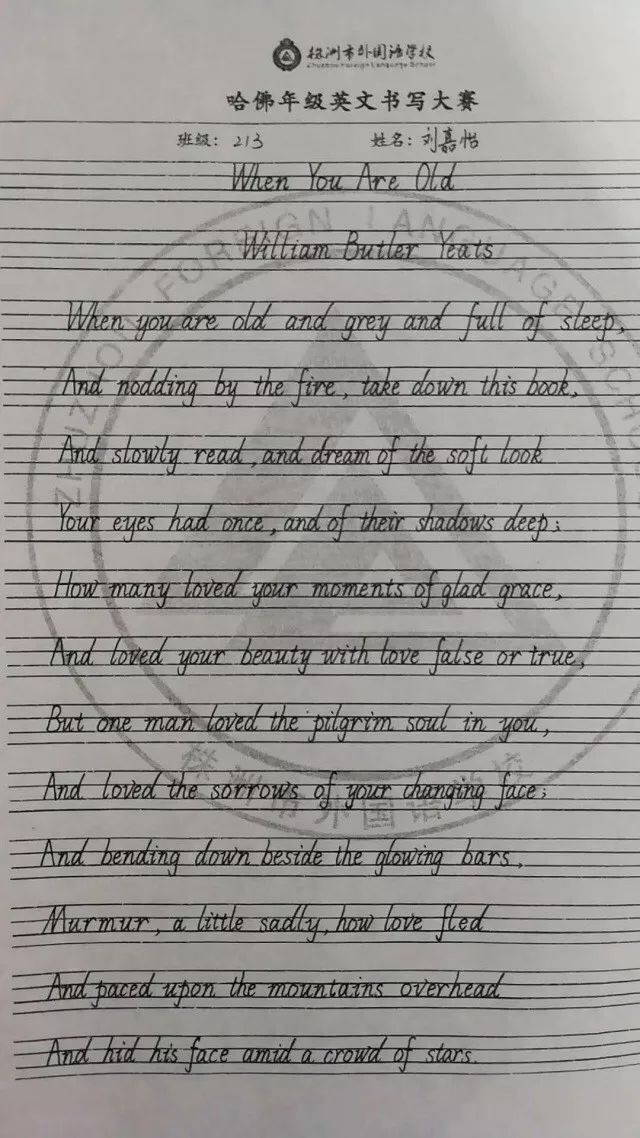 株洲市外国语学校
Zhuzhou Foreign Language School
哈佛年级英文书写大赛
班级: 213 姓名: 刘嘉怡
When You Are Old
William Butler Yeats
When you are old and grey and full of sleep,
And nodding by the fire, take down this book,
And slowly read, and dream of the soft look
Your eyes had once, and of their shadows deep;
How many loved your moments of glad grace,
And loved your beauty with love false or true,
But one man loved the pilgrim soul in you,
And loved the sorrows of your changing face;
And bending down beside the glowing bars,
Murmur, a little sadly, how love fled
And paced upon the mountains overhead
And hid his face amid a crowd of stars.
ZHUZHOU FOREIGN LANGUAGE SCHOOL
株洲市外国语学校